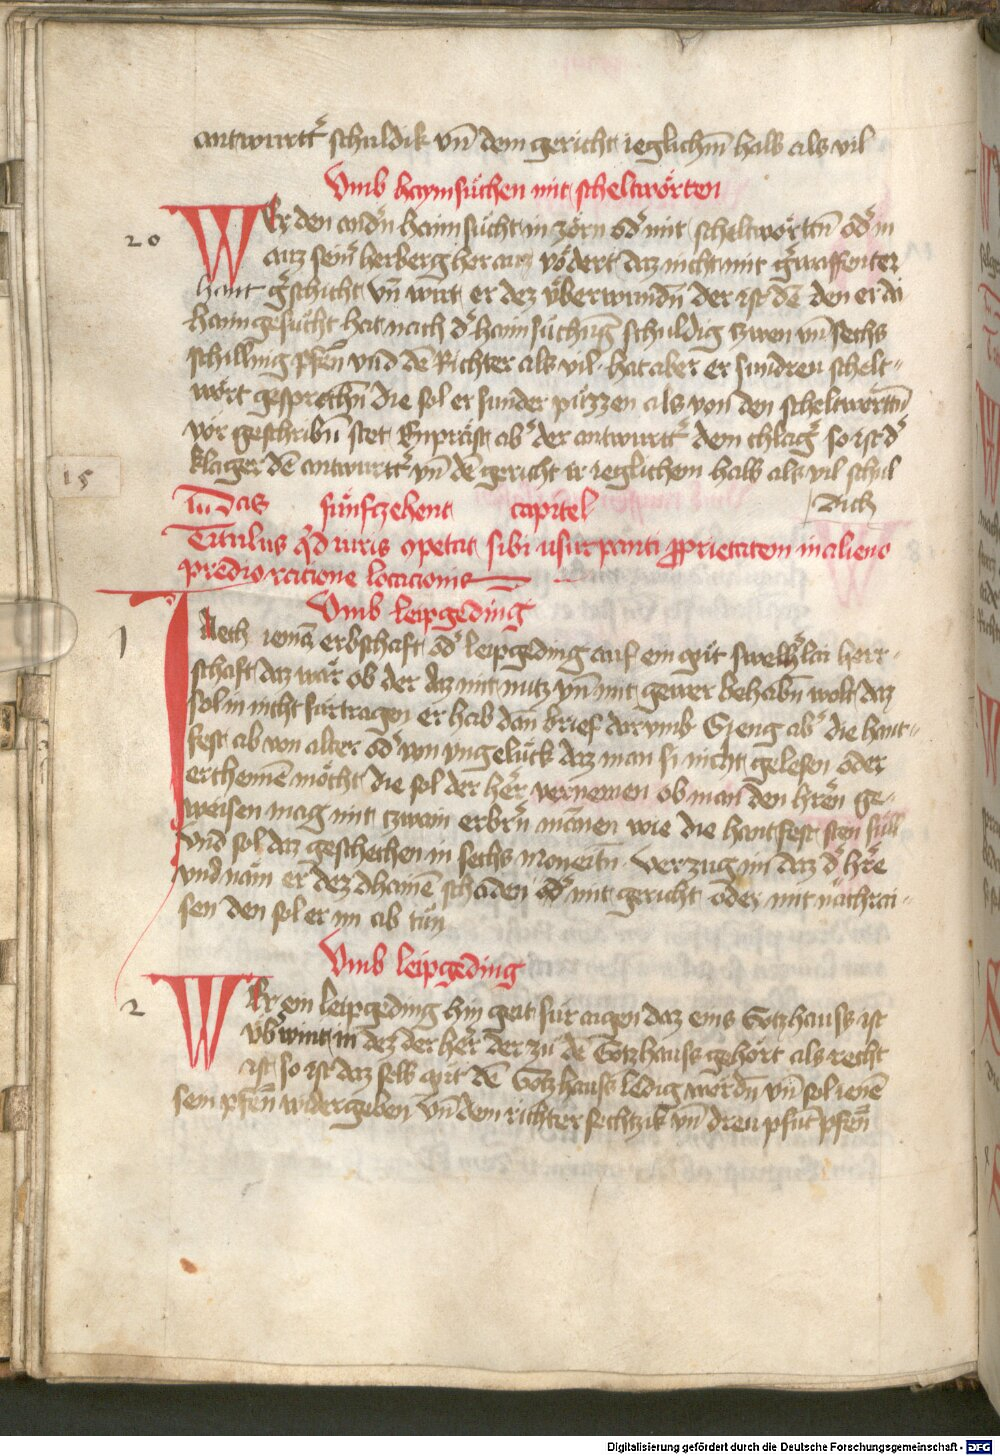 antwurtt͛ schuldik vn̄ dem gericht ieglichm̄ halb als vil
Vmb haymsůchen mit scheltwörten
20
WEr den andn̄ haimsůcht in zörn od͛ mit scheltwörttn̄ od͛ in
auz sein͛ herberg her auz vödert daz nicht mit g͛waffenter
hant g͛schicht vn̄ wirt er dez vberwundn̄ der ist dē den er da
haimgesůcht hat nach d͛ haimsůchūg schuldig zwen vn̄ sechs
schilling pfen̄ vnd dē Richter als vil · hat aber er sundreu schelt-
wort gesprochn̄ die sol er sunder püzzen als von den scheltwörttn̄
vor geschribn̄ stet Enpräst ab͛ der antwurtt͛ dem chlag͛ so ist d͛
klager dē antwurtt͛ vn̄ dē gericht ir ieglichem halb als vil schul
dich
15
Das fünfczehent capitel
Titulus qd̄ iuris ꝯpetat sibi usurpanti ꝓprietatem in alieno
predio racione locacionis
Vmb leipgeding
1
Iaech iemā erbschaft od͛ leipgeding auf ein gůt swelh͛lai herr-
schaft daz wär ob der daz mit nutz vn̄ mit gewer behabn̄ wolt daz
sol in nicht fürtragen er hab dan̄ brief darvmb Gieng ab͛ die hant-
fest ab von alter od͛ von vngelück daz man si nicht gelesen oder
erchennē möcht die sol der herr vernemen ob man den hr̄en ge-
weisen mag mit zwain erbr̄n mānen wie die hantfest sten süll
Vnd sol daz geschehen in sechs moneitn̄ · Verzug im daz d͛ hr̄e
vnd näm er dez dhainē schaden od͛ mit gericht oder mit nachrai-
sen den sol er im ab tůn
Vmb leipgeding
2
WEr ein leipgeding hin geit für aigen daz eins Gotzhauss ist
vbwint in dez der herr der zu dē Gotzhauss gehört als recht
ist so ist daz selb gůt dē Gotzhauss ledig wordn̄ vn̄ sol ienē
sein pfen̄ widergeben vn̄ dem richter sechtzik vn̄ dreu pfūt pfen̄
Digitalisierung gefördert durch die Deutsche Forschungsgemeinschaft - DFG